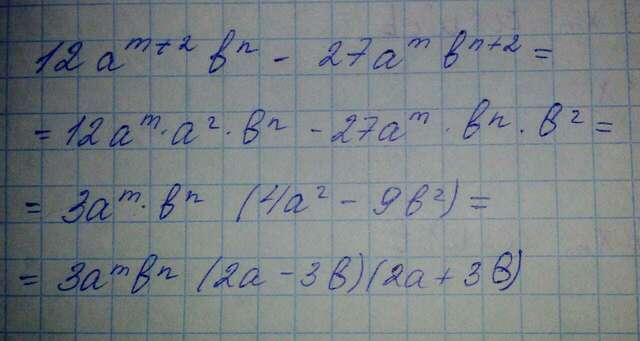 12a^{m+2} b^n - 27a^m b^{n+2} =
= 12a^m · a^2 · b^n - 27a^m · b^n · b^2 =
= 3a^m · b^n (4a^2 - 9b^2) =
= 3a^m b^n (2a - 3b)(2a + 3b)